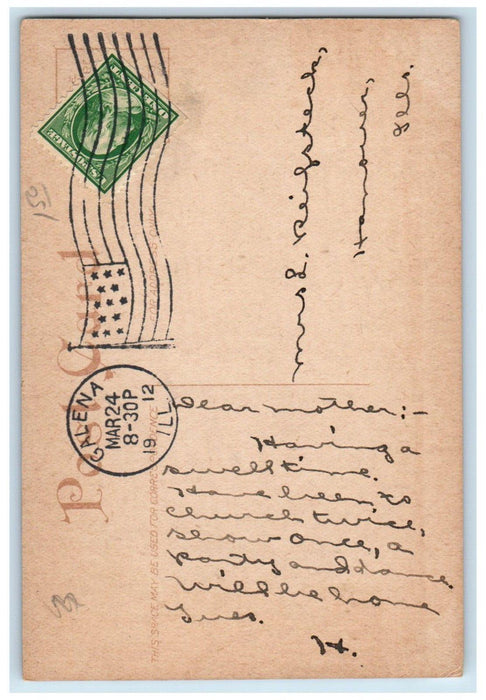 Post Card
THIS SPACE MAY BE USED FOR CORRESPONDENCE
GALENA
MAR 24
8-30P
19 12
ILL.
Dear mother:-
Having a
swell time.
Have been to
church twice,
show once, a
party and dance.
Will be home
Tues.
H.
Mrs L. Reifsteck,
Hanover,
Ills.